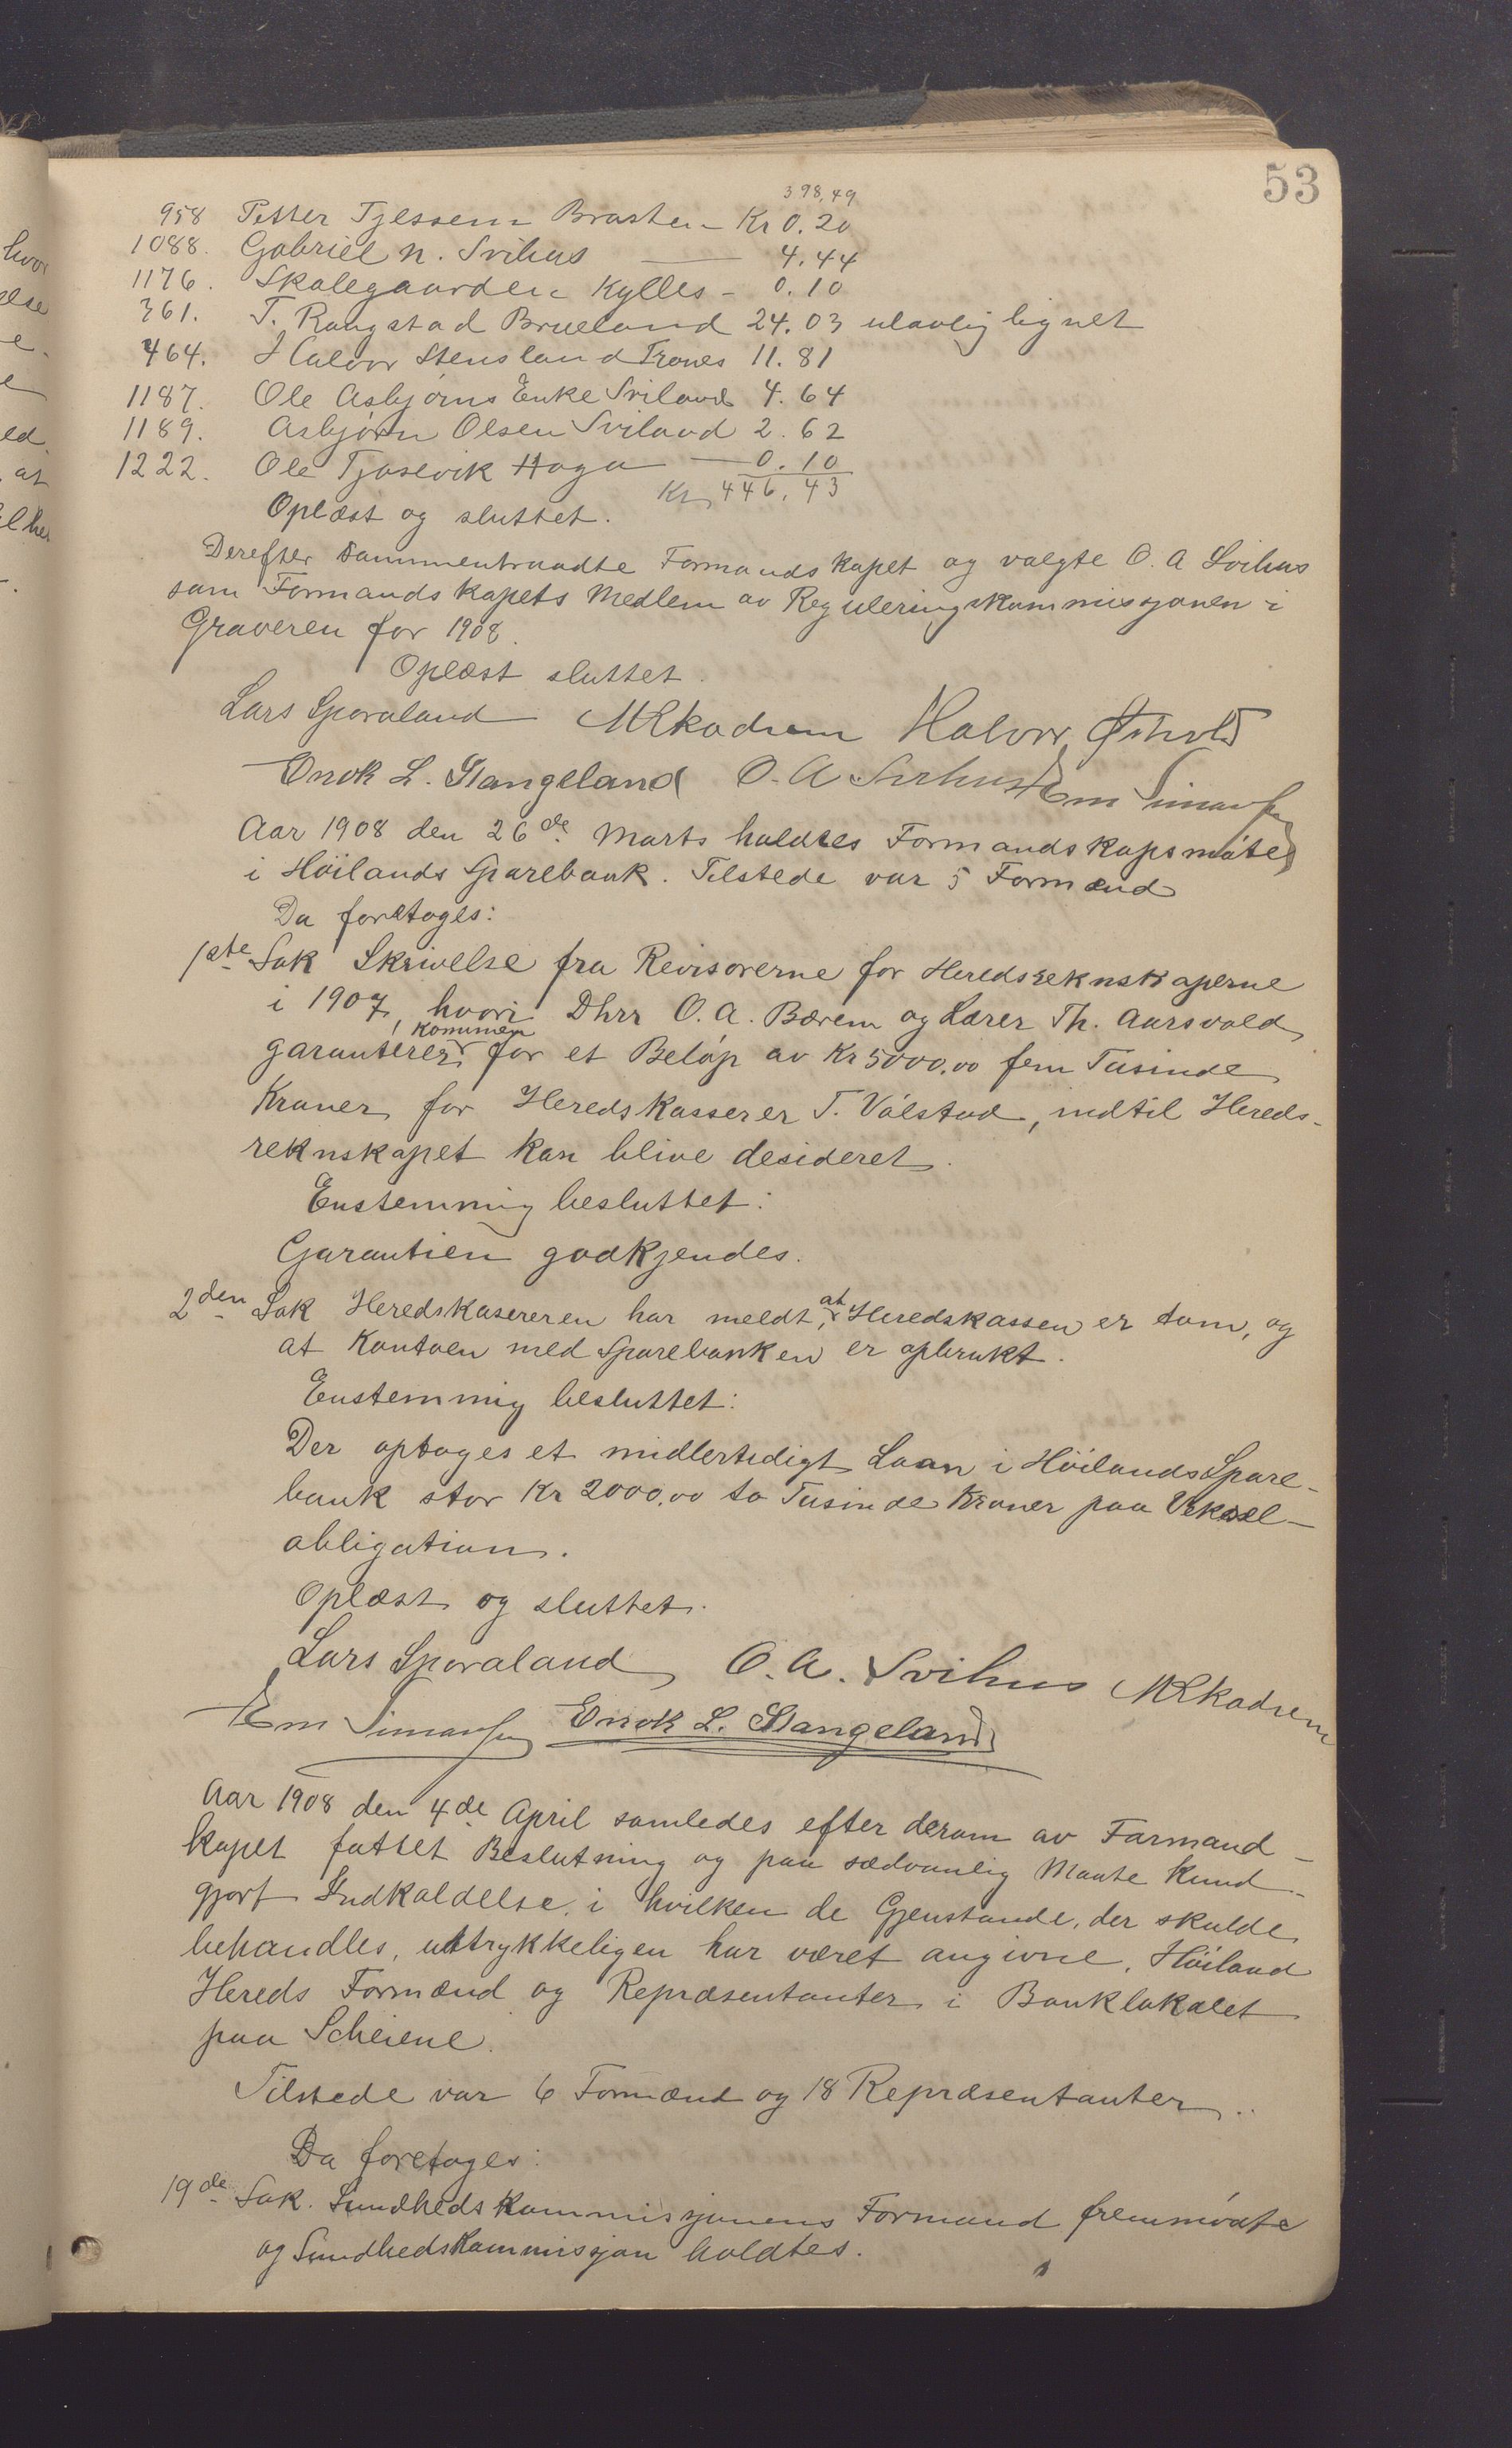 53
398,49
958 Petter Tjessem Brasten - Kr 0.20
1088. Gabriel N. Svihus — 4.44
1176. Skolegaarden Kylles - 0.10
361. T. Rangstad Brueland 24.03 ulovlig lignet
464. Halvor Stensland Trones 11.81
1187. Ole Asbjørns Enke Sviland 4.64
1189. Asbjørn Olsen Sviland 2.62
1222. Ole Tjosevik Hoga — 0.10
Kr 446,43
Oplæst og sluttet.
Derefter sammentraadte Formandskapet og valgte O. A Svihus
som Formandskapets Medlem av Reguleringskommissjonen i
Graveren for 1908.
Oplæst sluttet.
Lars Sporaland M Skadsem Halvor
Enok L. Stangeland O. A Svihus Em Simonsen
Aar 1908 den 26de Marts holdtes Formandskapsmøte
i Höilands Sparebank. Tilstede var 5 Formænd
Da foretoges:
1ste Sak Skrivelse fra Revisorerne for Heredsreknskaperne
i 1907, hvori Dhrr O. A. Bærem og Lærer Th. Aarsvold
kommer
garanterer for et Beløp av Kr 5000,00 fem Tusinde
Kroner for Heredskasserer T. Válstad, indtil Hereds-
reknskapet kan blive desideret.
Enstemmig besluttet:
Garantien godkjendes.
2den Sak Heredskasereren har meldt, at Heredskassen er tom, og
at Kontoen med Sparebanken er opbrukt.
Enstemmig besluttet:
Der optoges et midlertidigt Laan i Höilands Spare-
bank stor Kr 2000,00 to Tusinde Kroner paa Veksel-
obligation.
Oplæst og sluttet.
Lars Sporaland O. A. Svihus M Skadsem
Em Simonsen Enok L. Stangeland
Aar 1908 den 4de April samledes efter derom av Formand-
kapet fattet Beslutning og paa sædvanlig Maate kund-
gjort Indkaldelse, i hvilken de Gjenstande, der skulde
behandles, uttrykkeligen har været angivne, Höiland
Hereds Formænd og Repræsentanter i Banklokalet
paa Scheiene.
Tilstede var 6 Formænd og 18 Repræsentanter.
Da foretoges:
19de Sak. Sundhedskommissjonens Formand fremmøtte
og Sundhedskommissjon holdtes.